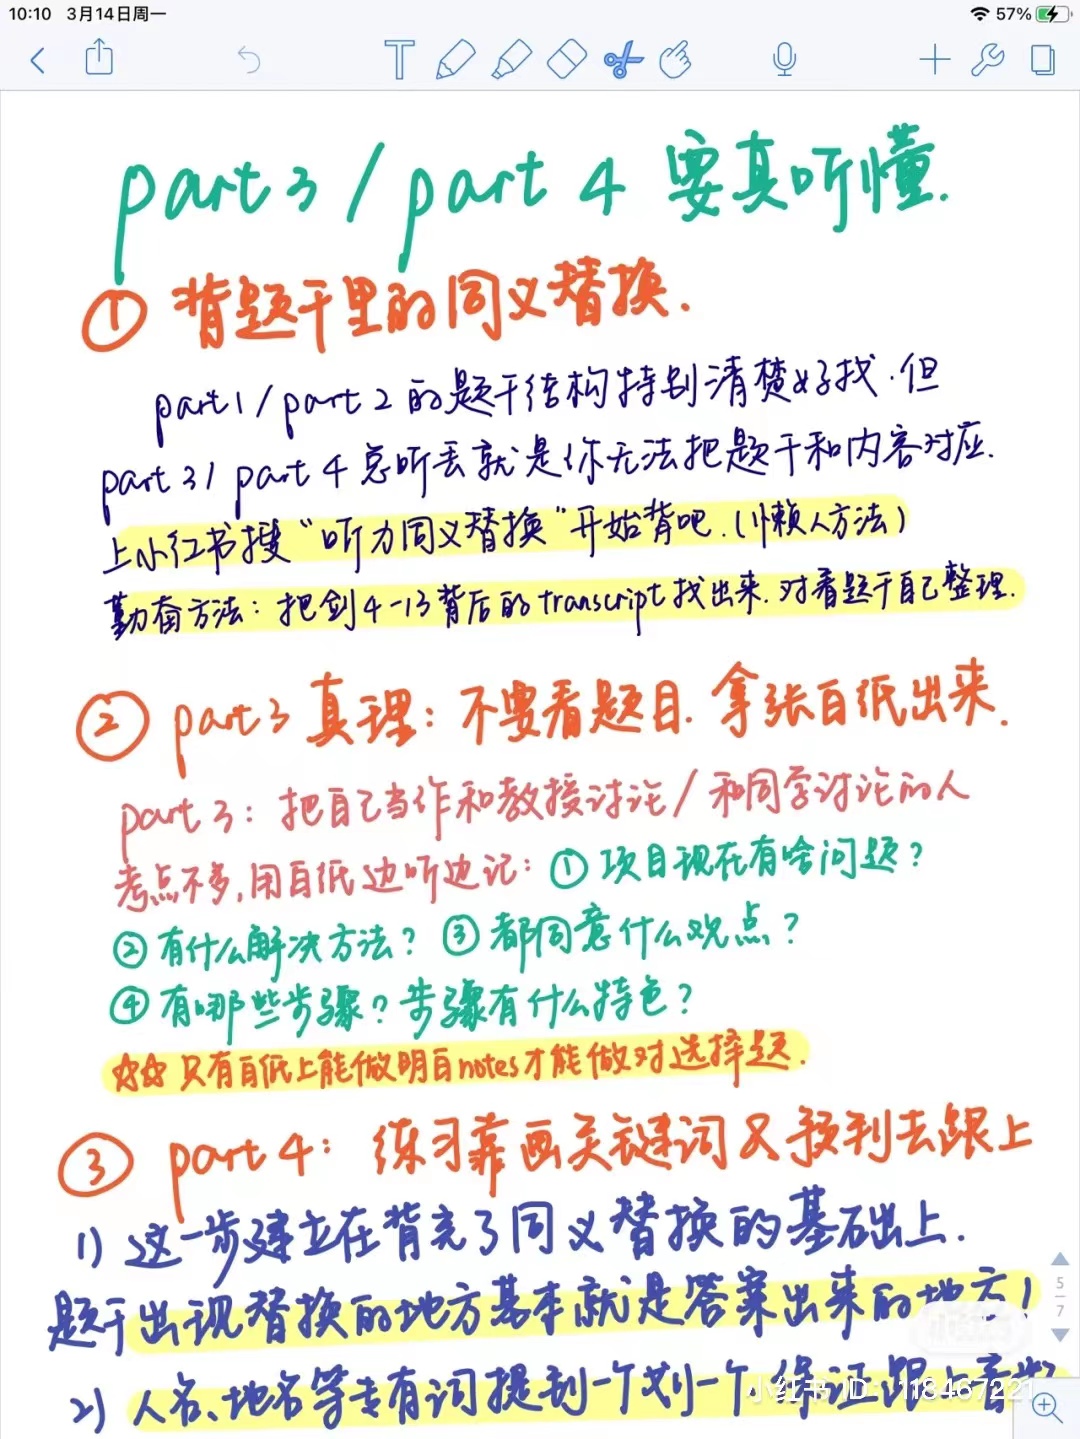 10:10 3月14日周一
57%
part 3 / part 4 要真听懂.
① 背题干里的同义替换.
part1/part 2 的题干结构特别清楚好找.但
part 3/ part 4 总听丢就是你无法把题干和内容对应.
上小红书搜“听力同义替换”开始背吧.(懒人方法)
勤奋方法: 把剑4-13背后的transcript找出来.对着题干自己整理.
② part 3 真理: 不要看题目. 拿张白纸出来.
part 3: 把自己当作和教授讨论/和同学讨论的人
考点不多,用白纸边听边记: ① 项目现在有啥问题?
② 有什么解决方法? ③ 都同意什么观点?
④ 有哪些步骤? 步骤有什么特色?
☆☆ 只有白纸上能做明白notes才能做对选择题.
③ part 4: 练习靠画关键词及预判去跟上
1) 这一步建立在背完了同义替换的基础上.
题干出现替换的地方基本就是答案出来的地方!
5
7
2) 人名、地名等专有词提到一个划一个.保证跟上
小红书 ID: 118467221